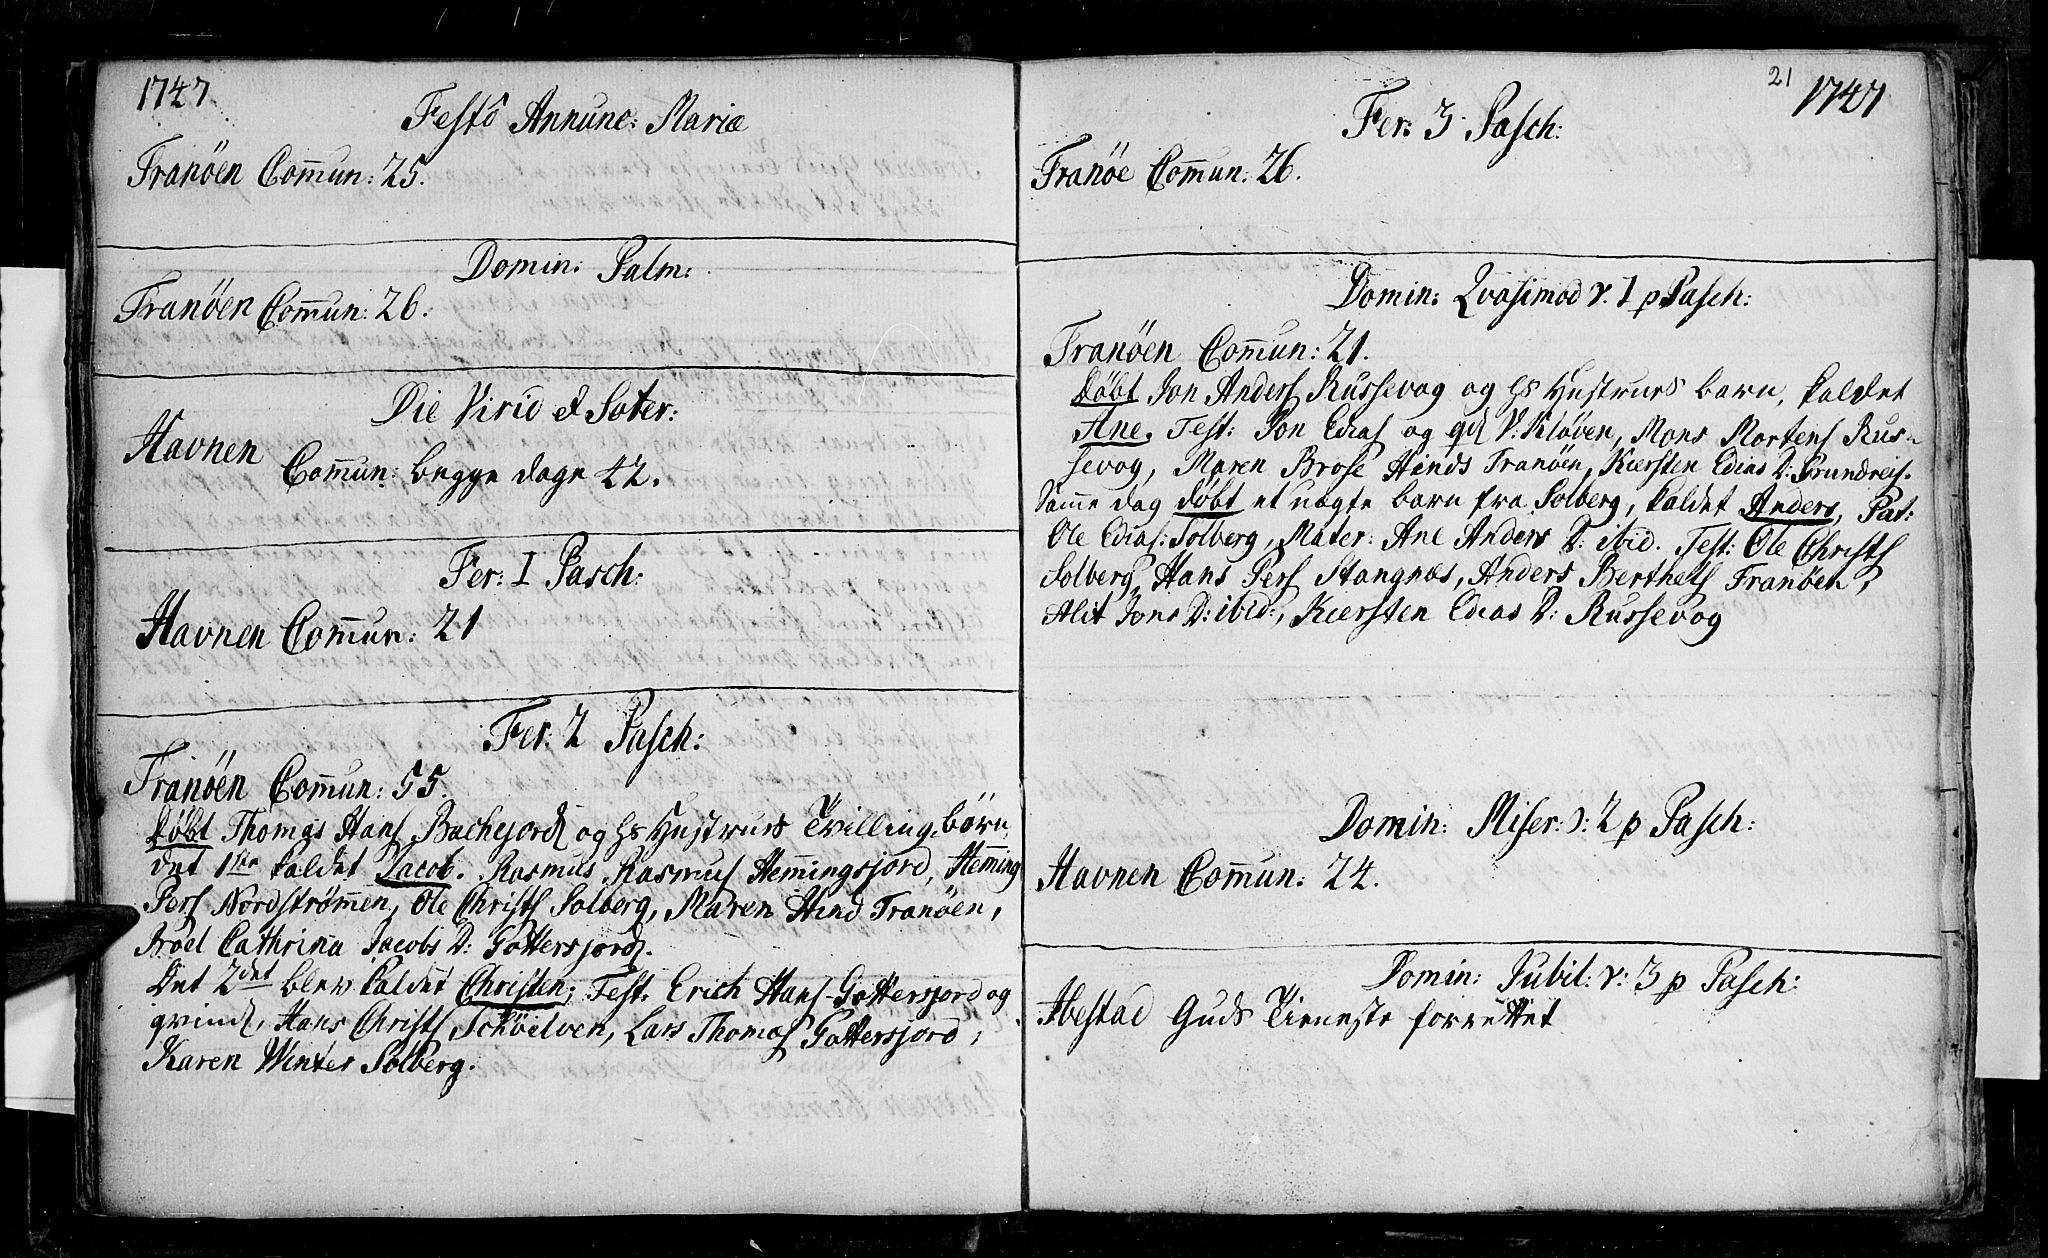 1747.
Festo Annunc: Mariæ
Tranöen Com̄un: 25.
Domin: Palm:
Tranöen Com̄un: 26.
Die Virid et Sater:
Havnen
Com̄un: begge dage 42.
Fer: 1 Pasch:
Havnen Com̄un: 21
Fer: 2 Pasch:
Tranöen Com̄un: 55.
Døbt Thomas Hans Bachejord og hs Hustrues Tvilling börn,
det 1ste kaldet Jacob. Rasmus Rasmus Hem̄ingsjord, Hem̄ing
Pers Nordstrøm̄en, Ole Christs Solberg, Maren Hind Tranöen,
Aroel Cathrina Jacobs D: Gottersjord.
Det 2det blev kaldet Christen; Test: Erich Hans Gottersjord og
qvind, Hans Christs Schöelven, Lars Thomæs Gottersjord,
Karen Winter Solberg.
21
1747
Fer: 3 Pasch:
Tranöe Com̄un: 26.
Domin: Qvasimod v: 1 p Pasch:
Tranöen Com̄un: 21.
Døbt Jon Anders Russevog og hs Hustrues barn, kaldet
Ane, Test: Jon Edias og qd V: Kløven, Mons Mortens Rus-
sevog, Maren Brose Hinds Tranöen, Kiersten Edias D: Grundreis.
Sam̄e dag døbt et uægte barn fra Solberg, kaldet Anders, Pat:
Ole Edias: Solberg, Mater: Ane Anders D: ibid. Test: Ole Christs
Solberg, Hans Pers Stangnæs, Anders Berthels Tranöen,
Alit Jons D: ibid:, Kiersten Edias D: Russevog
Domin: Miser: v: 2 p Pasch:
Havnen Com̄un: 24.
Domin: Jubil: v: 3 p Pasch:
Ibestad Guds Tieneste forrettet